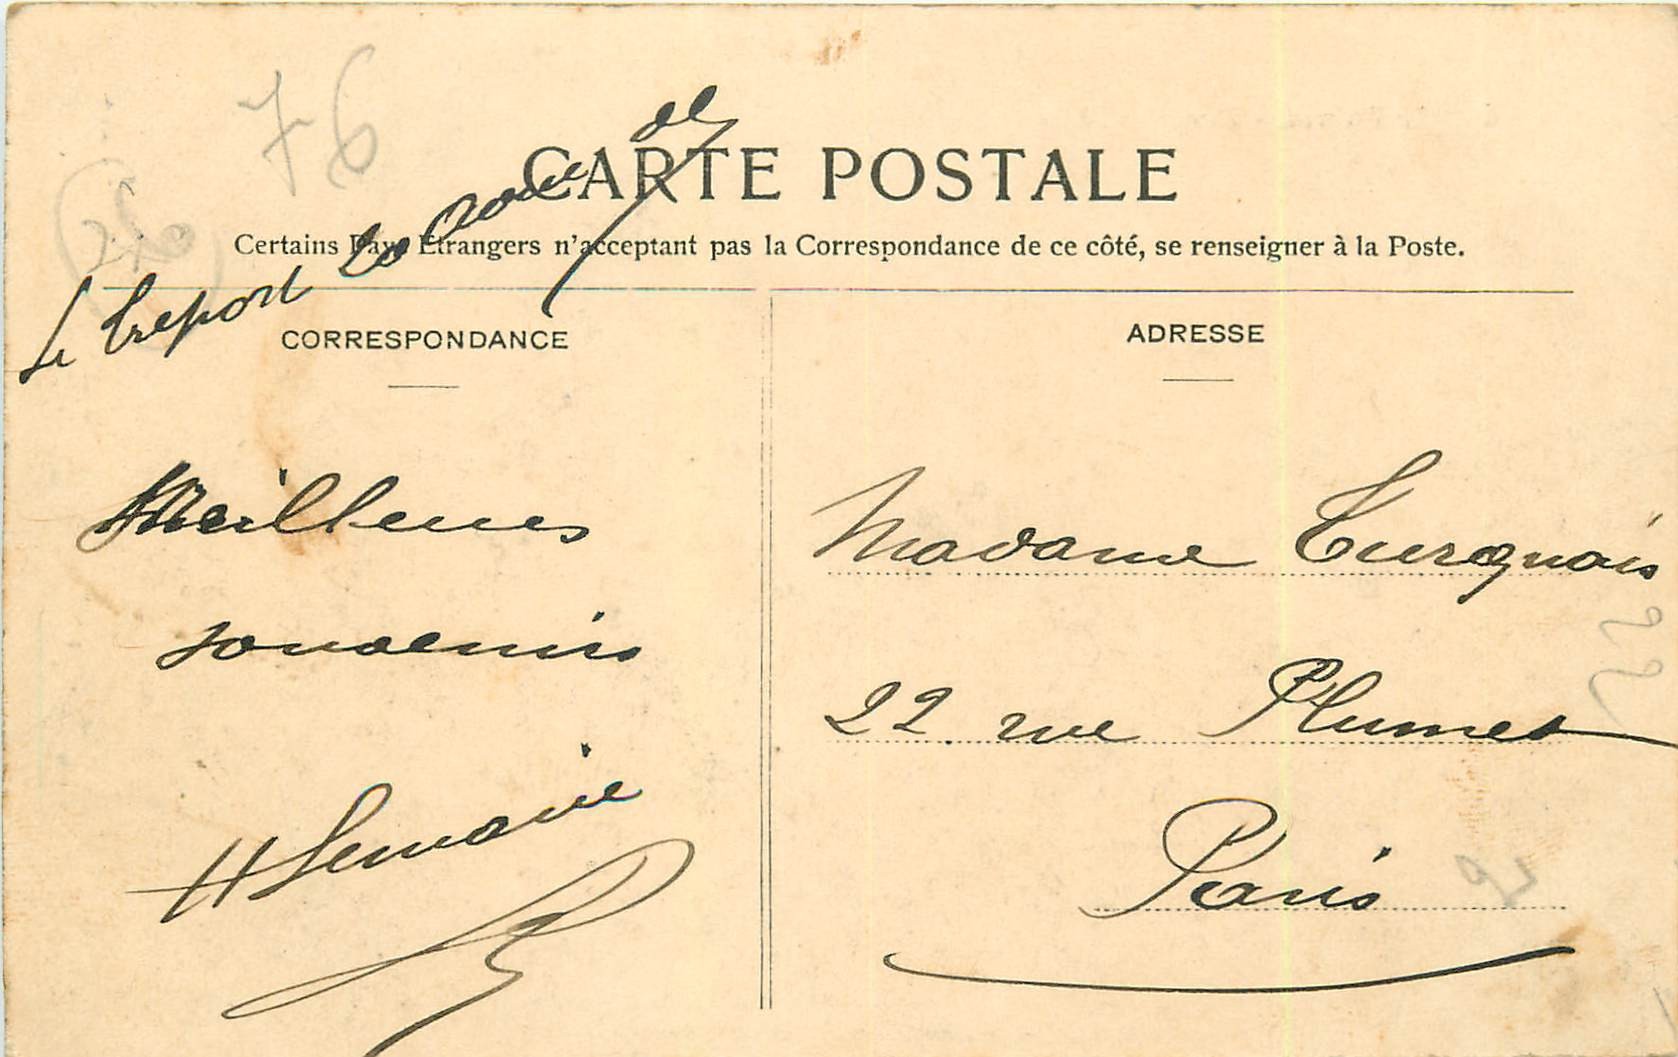 76
CARTE POSTALE
Certains Pays Etrangers n'acceptant pas la Correspondance de ce côté, se renseigner à la Poste.
Le Treport
CORRESPONDANCE
ADRESSE
Meilleurs
souvenirs
H Lemaire
Madame Turquais
22 rue Plumet
Paris
22